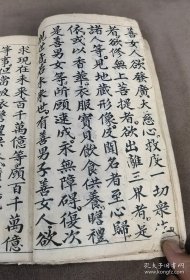 善女人欲發廣大慈心。救度一切衆生
者欲修無上菩提者。欲出離三界者。是
諸人等。見地藏形像。及聞名者至心歸
依。或以香華衣服寶貝飲食供養瞻禮
是善男女等所願速成。永無障碍復次
未來世有善男子善女人欲
求現在未來百千萬億等願百千萬億
等事但當